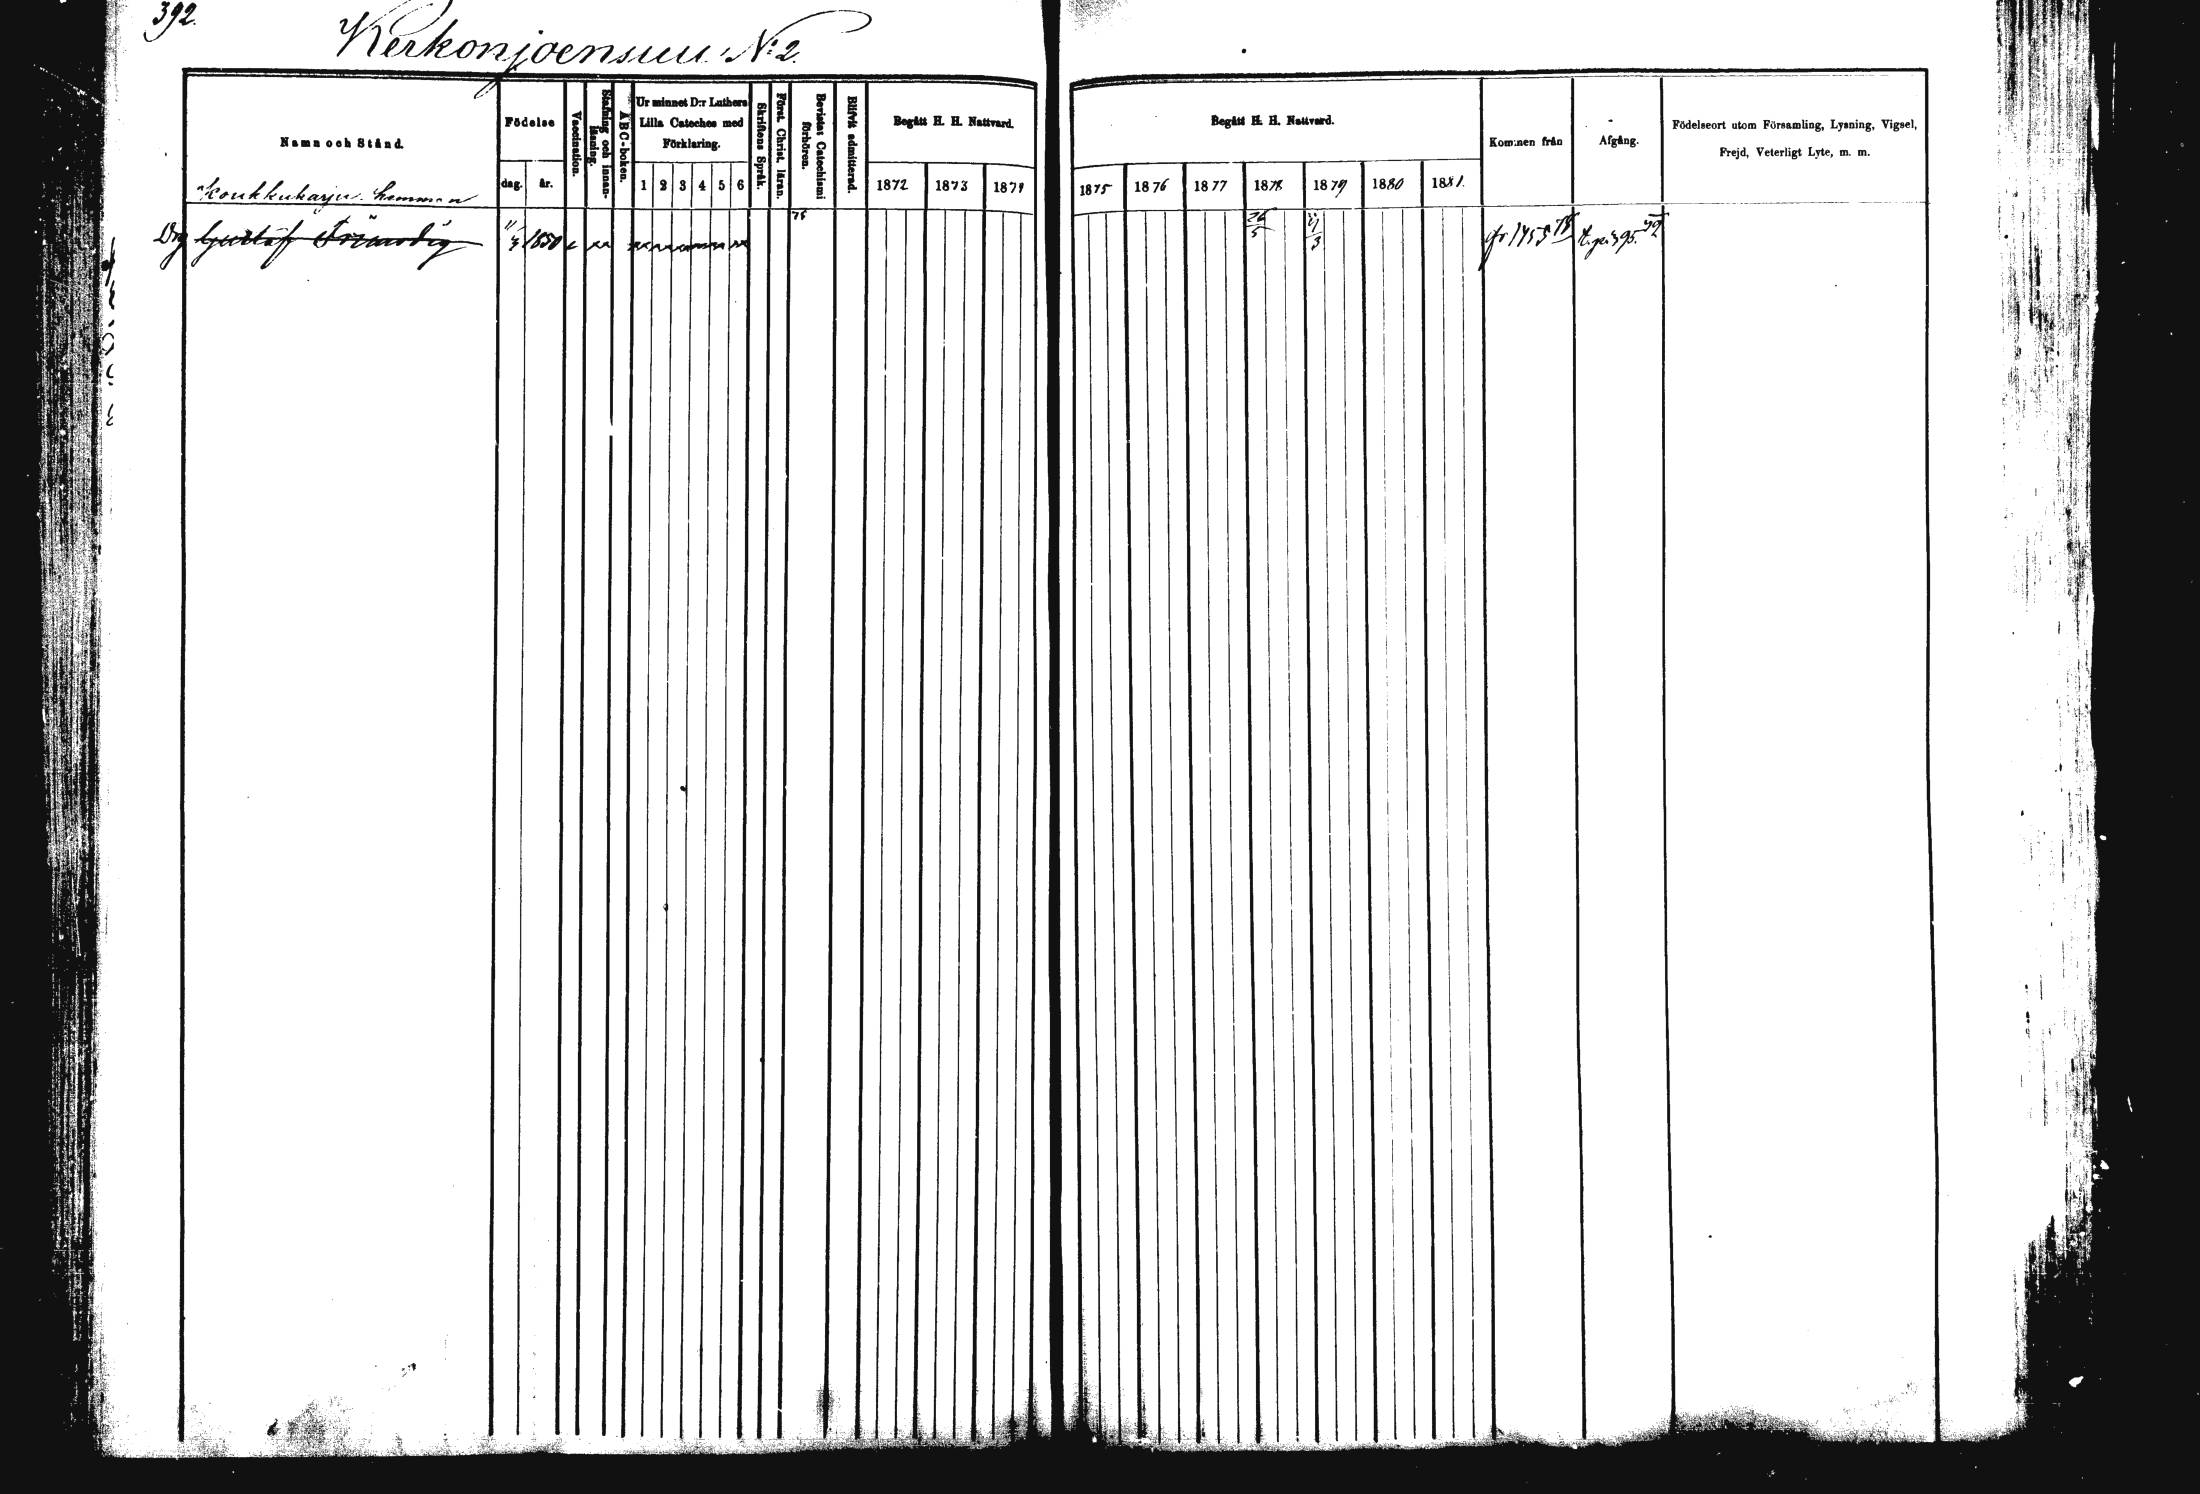 392.
Kerkonjoensuu. N:2.
Namn och Stånd.
Födelse
dag.
år.
Vaccination.
Stafning och innan-
läsning.
ABC-boken.
Ur minnet D:r Luthers
Lilla Cateches med
Förklaring.
1 2 3 4 5 6
Skriftens Språk.
Först. Christ. läran.
Bevistat Catechismi
förhören.
Blifvit admitterad.
Begått H. H. Nattvard.
1872 1873 1874
Begått H. H. Nattvard.
1875 1876 1877 1878 1879 1880 1881.
Kommen från
Afgång.
Födelseort utom Församling, Lysning, Vigsel,
Frejd, Veterligt Lyte, m. m.
Koukkuharju
Drg Gustaf 1850 26/5 fr 1455 78 395.